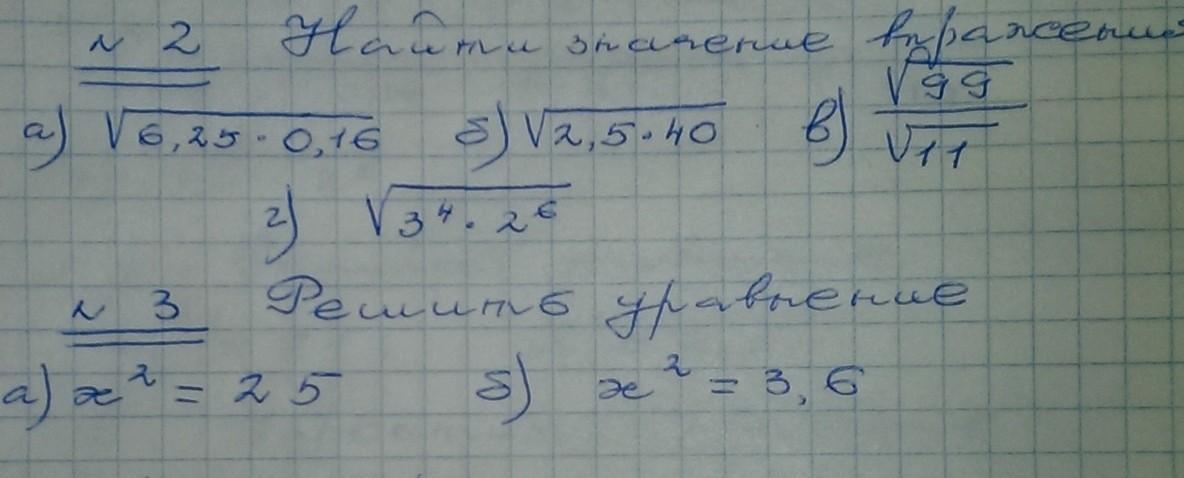 № 2 Найти значение выражений
а) √6,25·0,16 б) √2,5·40 в) √99/√11
г) √3⁴·2⁶
№ 3 Решить уравнение
а) x² = 25 б) x² = 3,6